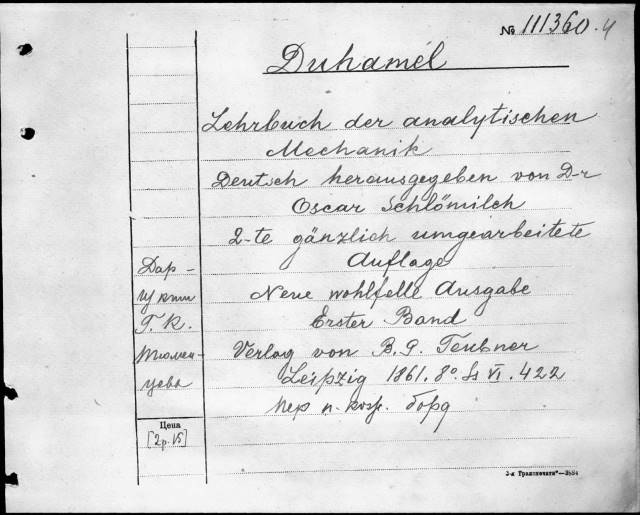 № 111360.4
Duhamél
Lehrbuch der analytischen
Mechanik
Deutsch herausgegeben von D-r
Oscar Schlömilch
2-te gänzlich umgearbeitete
Auflage
Neue wohlfelle Ausgabe
Erster Band
Verlag von B. G. Teubner
Leipzig 1861. 8°. Ss VI. 422
пер п. кож. борд
Дар -
Г. К.
тюмен-
цева
Цена
[2 р. 15]